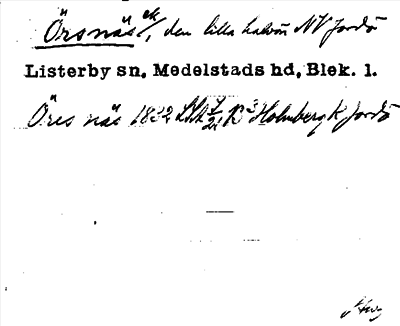 Örsnäs ek/, den lilla halvön NV Jordö
Listerby sn, Medelstads hd, Blek. l.
Öres näs 1832 Holmberg K Jordö